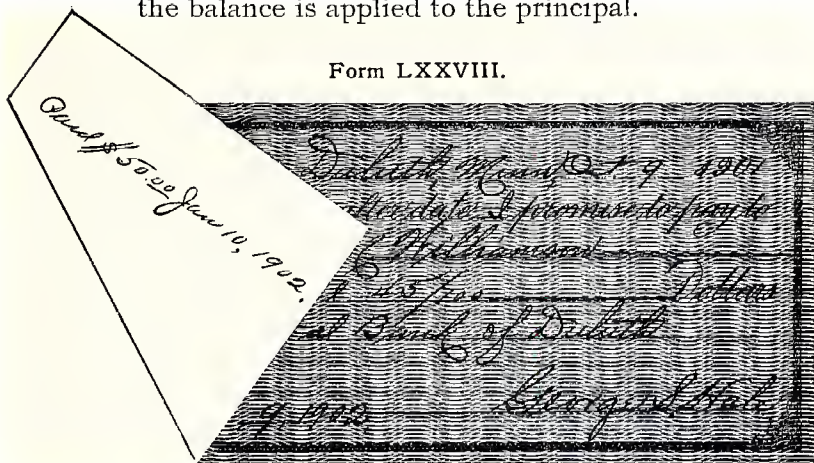 the balance is applied to the principal.
Form LXXVIII.
Paid $50 00 Jan 10, 1902.
Duluth, Minn, Oct 9 1901
after date I promise to pay to
Williamson
45/100 Dollars
al Bank of Duluth
9, 1902. George S.